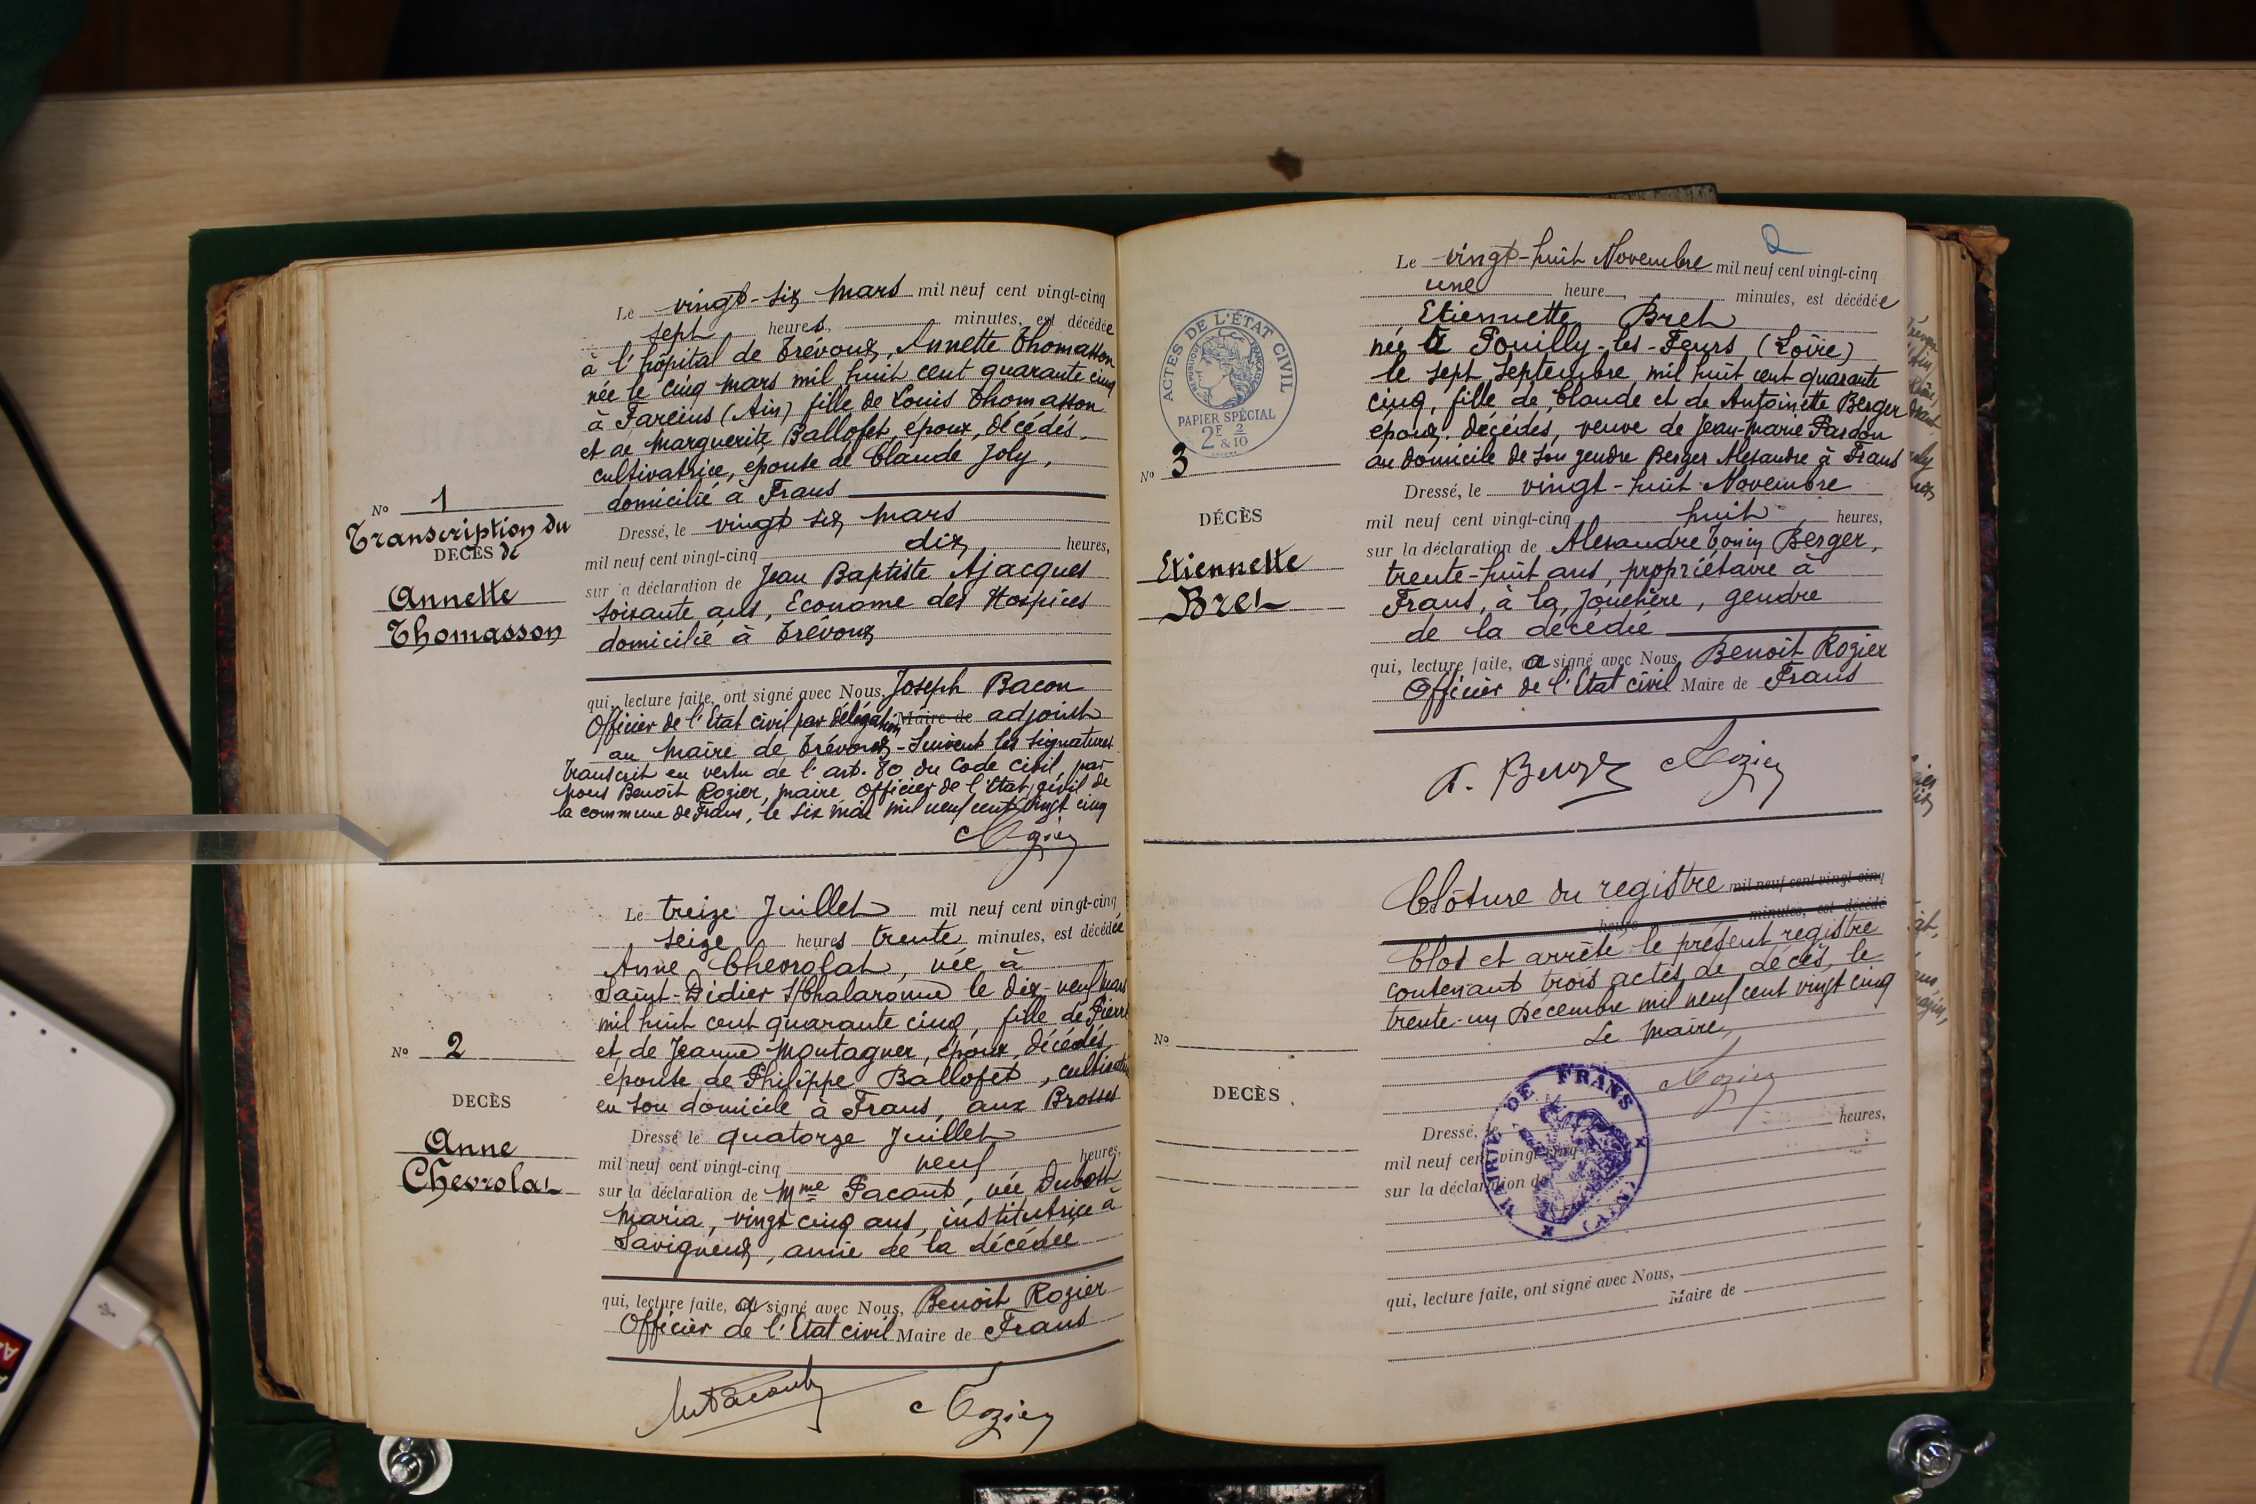 Le vingt-six mars mil neuf cent vingt-cinq
sept heures, minutes, est décédée
à l'hôpital de Trévoux, Annette Thomasson
née le cinq mars mil huit cent quarante cinq
à Fareins (Ain) fille de Louis Thomasson
et de Marguerite Ballofet, époux, décédés,
cultivatrice, épouse de Claude Joly,
domicilié à Frans
No 1
Transcription du
DECÈS de
Annette
Thomasson
Dressé, le vingt six mars
mil neuf cent vingt-cinq dix heures,
sur a déclaration de Jean Baptiste Ajacques
soixante ans, Econome des Hospices
domicilié à Trévoux
qui, lecture faite, ont signé avec Nous, Joseph Bacon
Officier de l'Etat civil par délégation Maire de adjoint
au maire de Trévoux - Suivent les signatures
Transcrit en vertu de l'art. 80 du Code civil par
nous Benoît Rozier, maire Officier de l'Etat civil de
la commune de Frans, le six mai mil neuf cent vingt cinq
Rozier
Le treize Juillet mil neuf cent vingt-cinq
seize heures trente minutes, est décédée
Anne Chevrolat, née à
Saint-Didier s/Chalaronne le dix-neuf mars
mil huit cent quarante cinq, fille de Pierre
et de Jeanne Montagner, époux, décédés,
épouse de Philippe Ballofet,
en son domicile à Frans, aux Brosses
No 2
DECÈS
Anne
Chevrolat
Dressé le quatorze Juillet
mil neuf cent vingt-cinq neuf heures,
sur la déclaration de Mme Pacaut, née Dubost
Maria, vingt cinq ans, institutrice à
Savigneux, amie de la décédée
qui, lecture faite, a signé avec Nous, Benoît Rozier
Officier de l'Etat civil Maire de Frans
M Pacaut
Rozier
2
Le vingt-huit Novembre mil neuf cent vingt-cinq
une heure, minutes, est décédée
Etiennette Bret
née à Pouilly-les-Feurs (Loire)
le sept Septembre mil huit cent quarante
cinq, fille de Claude et de Antoinette Berger
époux, décédés, veuve de Jean-Marie Pardon
au domicile de son gendre Berger Alexandre à Frans
ACTES DE L'ÉTAT CIVIL
RÉPUBLIQUE FRANÇAISE
PAPIER SPÉCIAL
2F & 2/10
No 3
DÉCÈS
Etiennette
Bret
Dressé, le vingt-huit Novembre
mil neuf cent vingt-cinq huit heures,
sur la déclaration de Alexandre Tonin Berger,
trente-huit ans, propriétaire à
Frans, à la Jonchère, gendre
de la décédée
qui, lecture faite, a signé avec Nous, Benoît Rozier
Officier de l'Etat civil Maire de Frans
A. Berger
Rozier
Clôture du registre mil neuf cent vingt-cinq
heure minutes, est décédé
Clos et arrêté le présent registre
contenant trois actes de décès, le
trente-un Décembre mil neuf cent vingt cinq
Le Maire,
Rozier
MAIRIE DE FRANS
(AIN)
No
DECÈS
Dressé, le heures,
mil neuf cent vingt-cinq
sur la déclaration de
qui, lecture faite, ont signé avec Nous,
Maire de